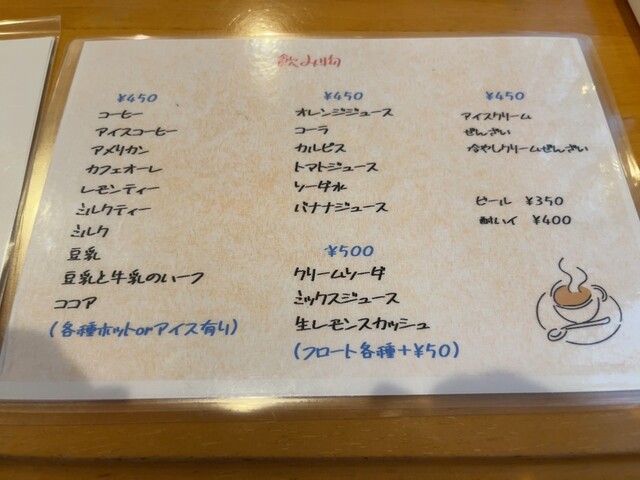 飲み物
¥450
コーヒー
アイスコーヒー
アメリカン
カフェオーレ
レモンティー
ミルクティー
ミルク
豆乳
豆乳と牛乳のハーフ
ココア
(各種ホットorアイス有り)
¥450
オレンジジュース
コーラ
カルピス
トマトジュース
ソーダ水
バナナジュース
¥500
クリームソーダ
ミックスジュース
生レモンスカッシュ
(フロート各種+¥50)
¥450
アイスクリーム
ぜんざい
冷やしクリームぜんざい
ビール ¥350
酎ハイ ¥400